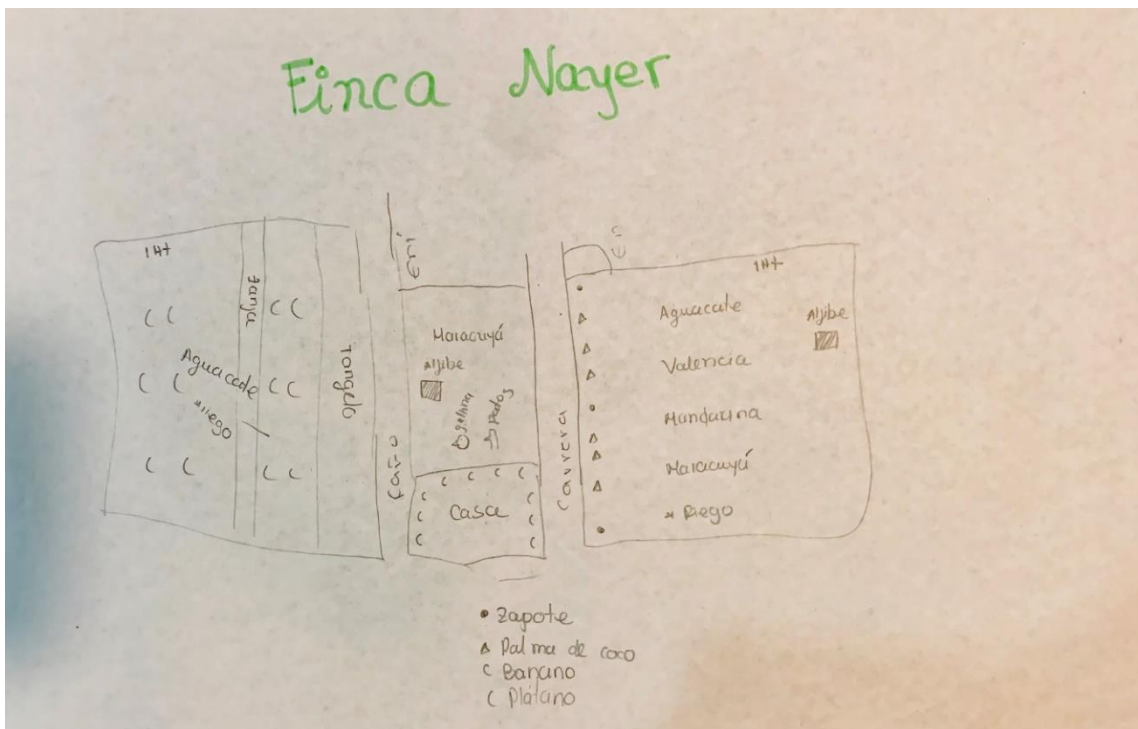 Finca Nayer
1H+
Zanja
Aguacate
*riego
Tangelo
Caño
Eni
Maracuyá
Aljibe
galina
Patos
Casa
Carrera
1H+
Aguacate
Aljibe
Valencia
Mandarina
Maracuyá
* Riego
• Zapote
△ Palma de coco
( Banano
( Plátano